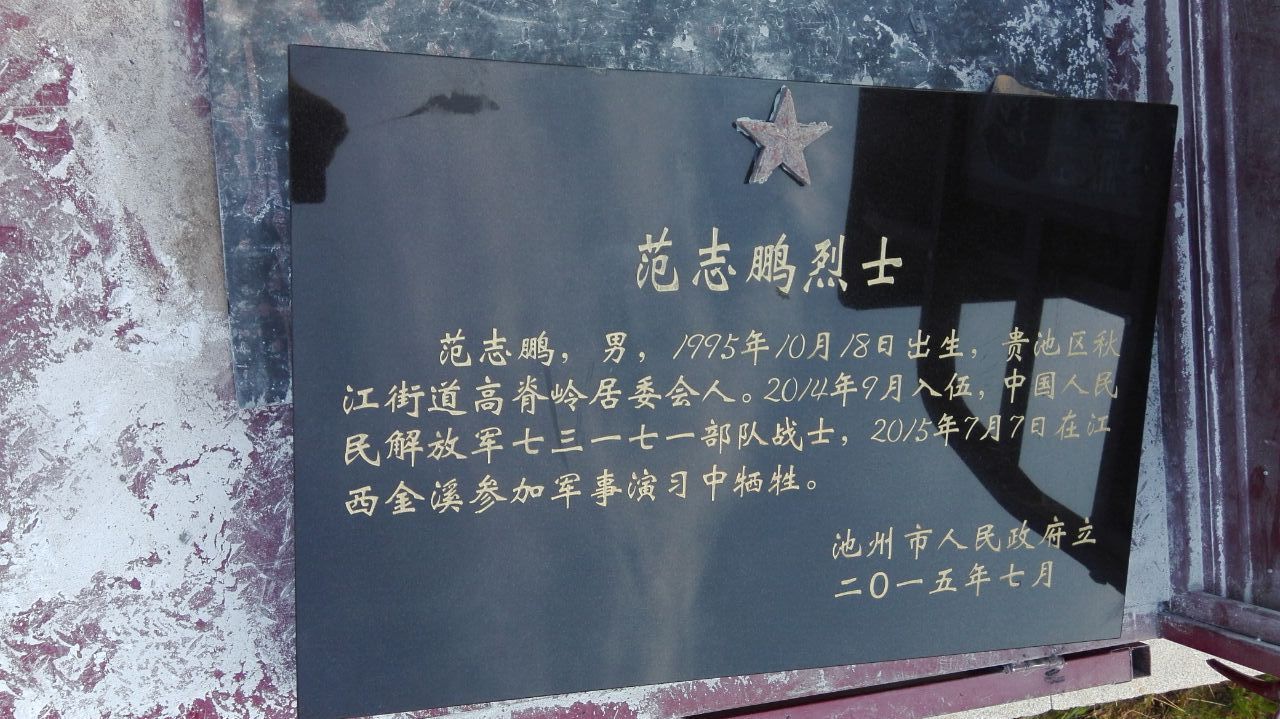 范志鹏烈士
范志鹏，男，1995年10月18日出生，贵池区秋
江街道高脊岭居委会人。2014年9月入伍，中国人民
民解放军七三一七一部队战士，2015年7月7日在江
西金溪参加军事演习中牺牲。
池州市人民政府立
二〇一五年七月